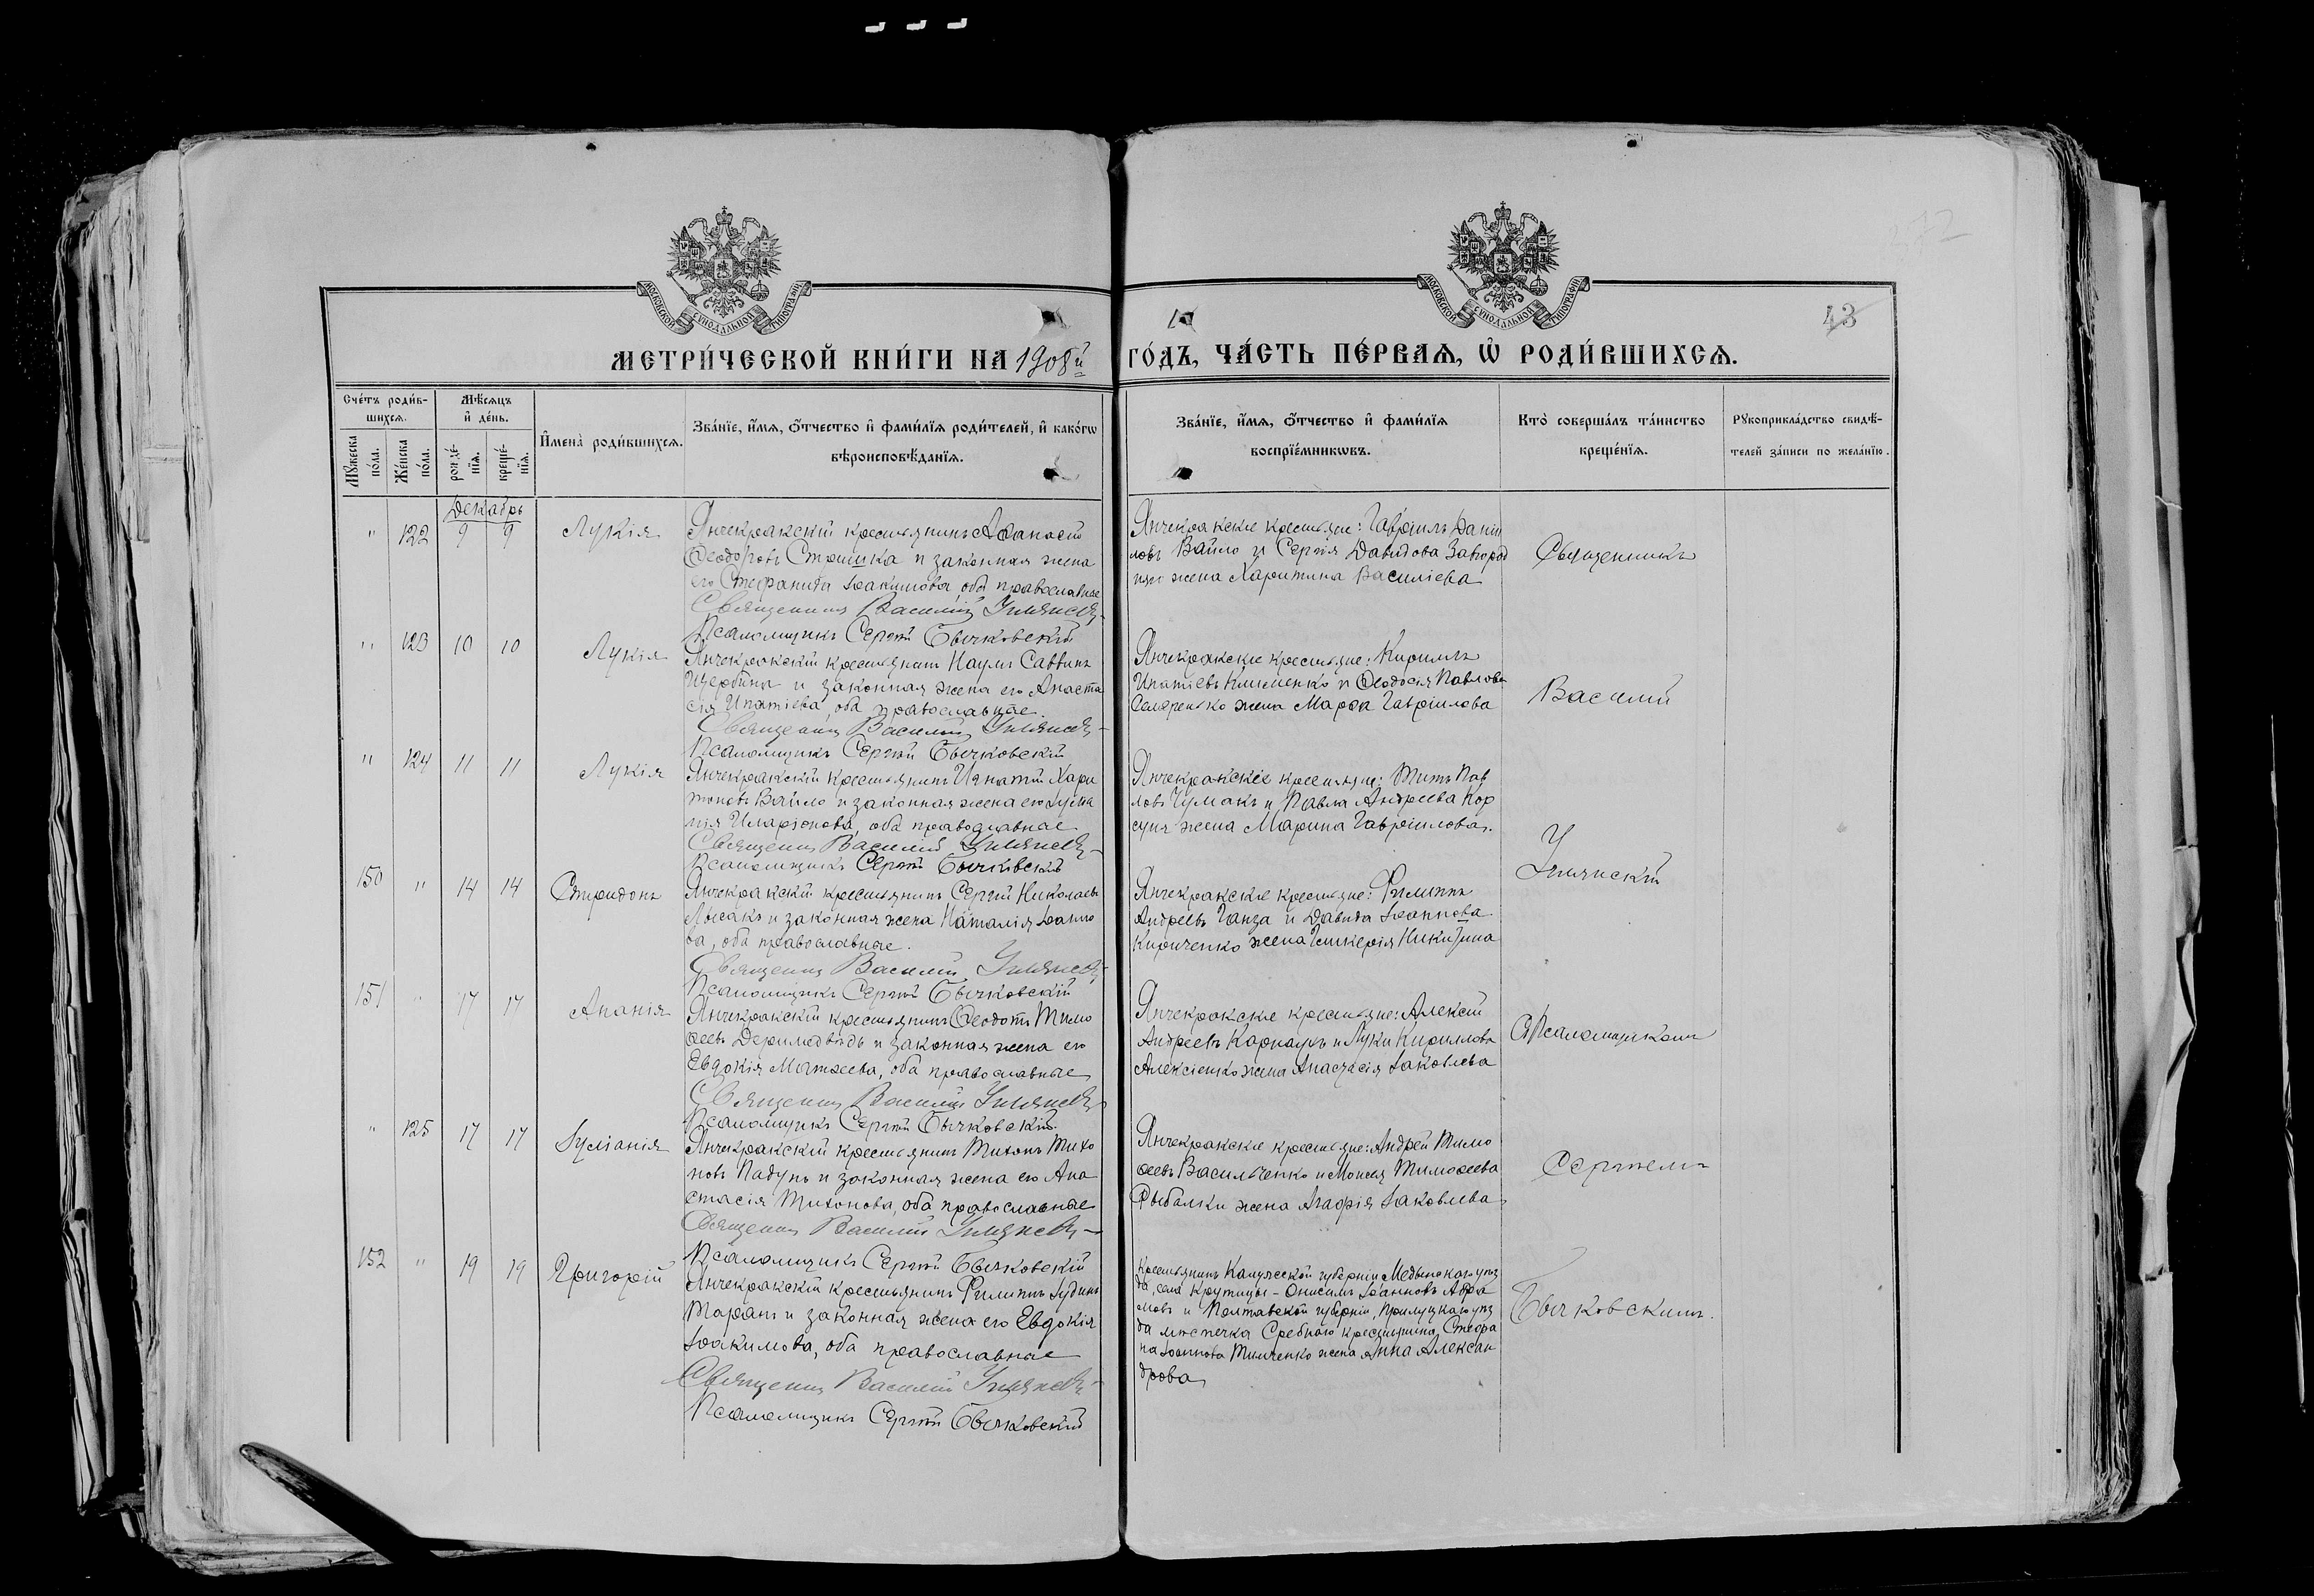 МОСКОВСКОЙ СѴНОДАЛЬНОЙ ТИПОГРАФІИ
МОСКОВСКОЙ СѴНОДАЛЬНОЙ ТИПОГРАФІИ
43
МЕТРИ́ЧЕСКОЙ КНИ́ГИ НА 1908й ГО́ДЪ, ЧА́СТЬ ПЕ́РВАѦ, Ѡ҆ РОДИ́ВШИХСѦ.
Сче́тъ роди́в-
шихсѧ.
Мꙋ́жеска по́ла.
Же́нска по́ла.
Мѣ́сѧцъ
и҆ де́нь.
рожде́-
нїѧ.
креще́-
нїѧ.
И҆мена̀ роди́вшихсѧ.
Зва́нїе, и҆́мѧ, ѻ҆́тчество и҆ фами́лїѧ роди́телей, и҆ како́гѡ
вѣроисповѣ́данїѧ.
Зва́нїе, и҆́мѧ, ѻ҆́тчество и҆ фами́лїѧ
воспрїе́мникѡвъ.
Кто̀ соверша́лъ та́инство
креще́нїѧ.
Рꙋкоприкла́дство свидѣ́-
телей за́писи по жела́нїю.
Декабрь
" 122 9 9 Лукія
Янчекракскій крестьянинъ Аѳанасій
Ѳеодоровъ Стришка и законная жена
его Стефанида Іоакимова, оба православные
Священникъ Василій
Псаломщикъ Сергій Бычковскій
Янчекракскіе крестьяне: Гавріилъ Даніи
ловъ Вайло и Сергія Давидова Завгород
няг жена Харитина Василіева
Священникъ
" 123 10 10 Лукія
Янчекракскій крестьянинъ Наумъ Саввинъ
Щербина и законная жена его Анаста
сія Ипатіева, оба православные
Священникъ Василій
Псаломщикъ Сергій Бычковскій
Янчекракскіе крестьяне: Кириллъ
Ипатіевъ Клименко и Ѳеодосія Павлова
жена Марѳа Гавріилова
Василій
" 124 11 11 Лукія
Янчекракскій крестьянинъ Игнатій Хари
тоновъ Вайло и законная жена его Іулiа
нія Иларіонова, оба православные
Священникъ Василій
Псаломщикъ Сергій Бычковскій
Янчекракскіе крестьяне: Титъ Пав
ловъ Чумакъ и Павла Андреева Кор
суня жена Марина Гавріилова.
150 " 14 14 Спиридонъ
Янчекракскій крестьянинъ Сергій Николаевъ
Лысакъ и законная жена Наталія Іоанно
ва, оба православные.
Священникъ Василій
Псаломщикъ Сергій Бычковскій
Янчекракскіе крестьяне: Филиппъ
Андреевъ Ганза и Давида Іоаннова
Кириченко жена Гликерія Никитина
151 " 17 17 Ананія
Янчекракскій крестьянинъ Ѳеодотъ Тимо
ѳеевъ Деримедвѣдь и законная жена его
Евдокія Матѳеева, оба православные
Священникъ Василій
Псаломщикъ Сергій Бычковскій
Янчекракскіе крестьяне: Алексій
Андреевъ Карнаухъ и Луки Кириллова
Алексіенко жена Анастасія Іаковлева
съ Псаломщикомъ
" 125 17 17 Іуліанія
Янчекракскій крестьянинъ Тихонъ Тихо
новъ Падунъ и законная жена его Ана
стасія Тихонова, оба православные
Священникъ Василій
Псаломщикъ Сергій Бычковскій
Янчекракскіе крестьяне: Андрей Тимо
ѳеевъ Васильченко и Моисея Тимоѳеева
Рыбалки жена Агафія Іаковлева
Сергіемъ
152 " 19 19 Григорій
Янчекракскій крестьянинъ Филиппъ Іудинъ
Таранъ и законная жена его Евдокія
Іоакимова, оба православные
Священникъ Василій
Псаломщикъ Сергій Бычковскій
Крестьянинъ Калужской губерніи Медынскаго уѣз
да, села Крутицы - Онисимъ Іоанновъ Абра
мовъ и Полтавской губерніи, Прилуцкаго уѣз
да мѣстечка Сребнаго крестьянина Стефа
на Іоаннова Тимченко жена Анна Алексан
дрова
Бычковскимъ.